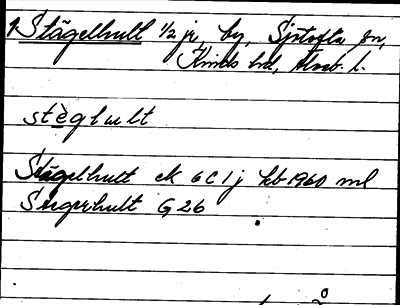 Stägelhult 1/2 jr, by, Sjötofta sn,
Kinds hd, Älvsb. l.
stèghult
Stägelhult ek 6C1j kb 1960 ml
Stegerhult G 26